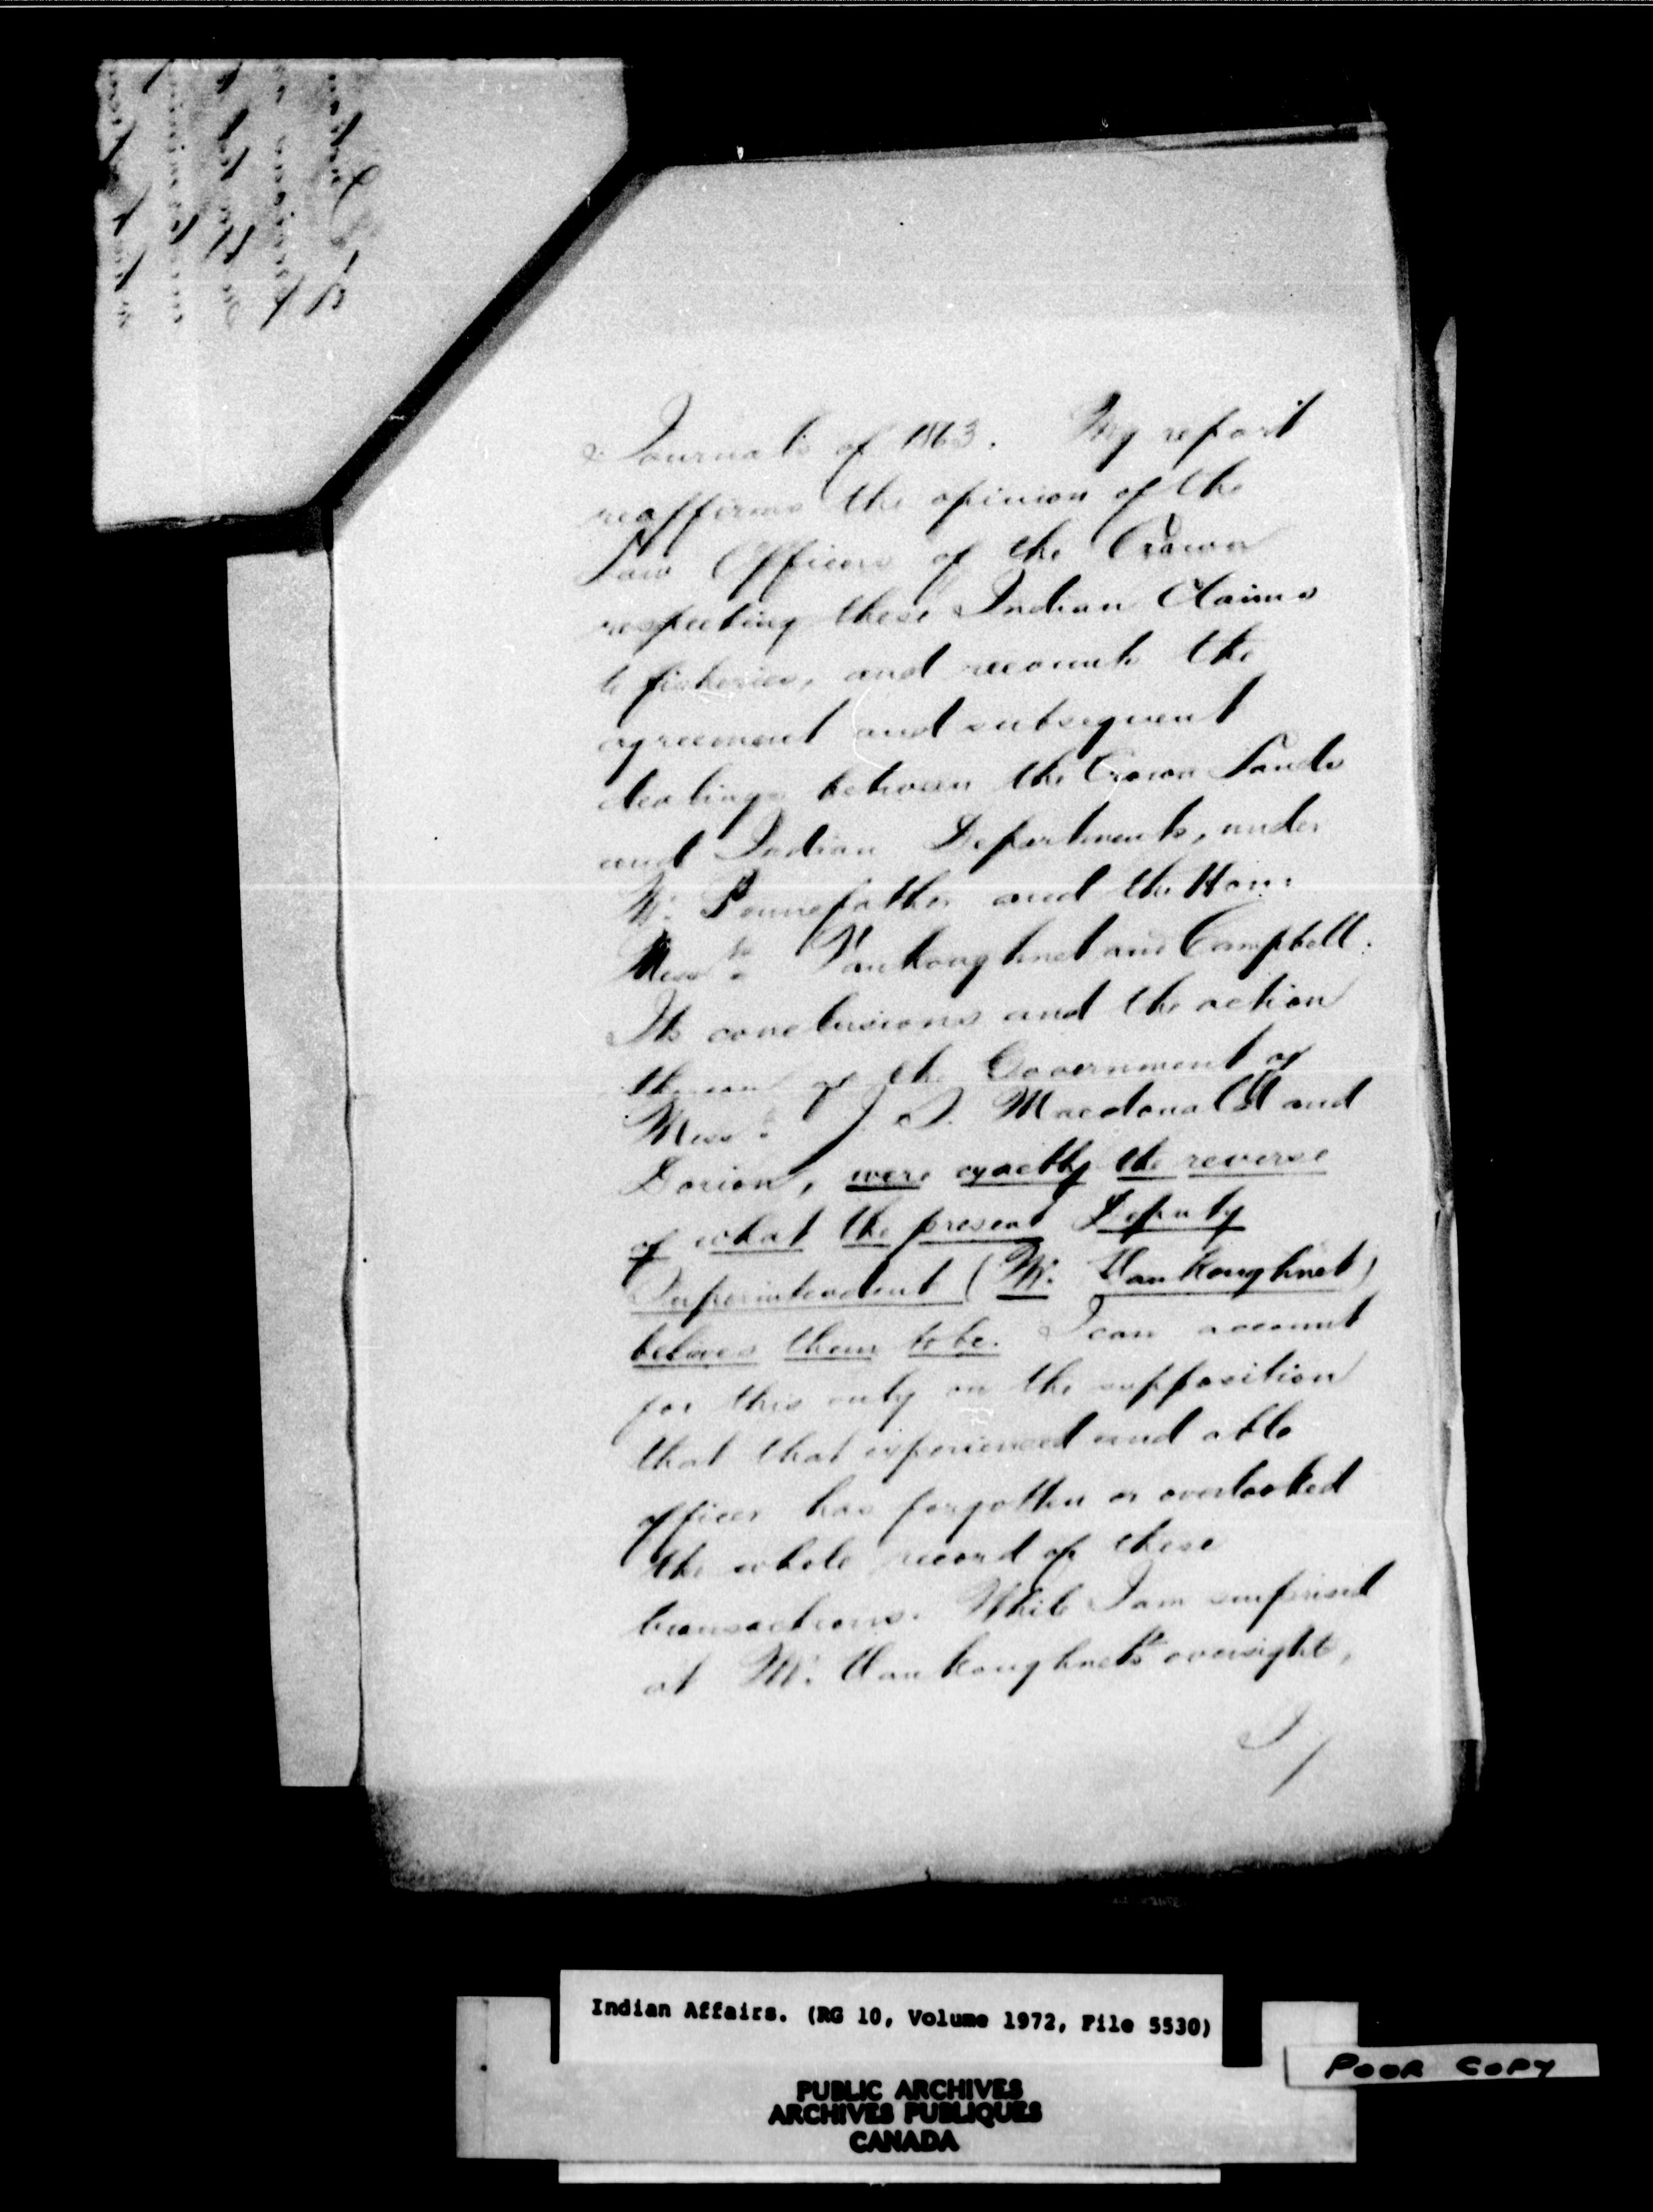 Journals of 1863. My report
reaffirms the opinion of the
Law Officers of the Crown
respecting these Indian Claims
to fisheries, and recounts the
agreement and subsequent
dealings between the Crown Lands
and Indian Departments, under
Mr. Pennefather and the Hon:
Messrs. Vankoughnet and Campbell.
Its conclusions and the action
thereon of the Government of
Messrs. J. S. Macdonald and
Dorion, were exactly the reverse
of what the present Deputy
Superintendent (Mr. VanKoughnet)
believes them to be. I can account
for this only on the supposition
that that experienced and able
officer has forgotten or overlooked
the whole record of these
transactions. While I am surprised
at Mr. Vankoughnet's oversight,
I/
Indian Affairs. (RG 10, Volume 1972, File 5530)
PUBLIC ARCHIVES
ARCHIVES PUBLIQUES
CANADA
POOR COPY